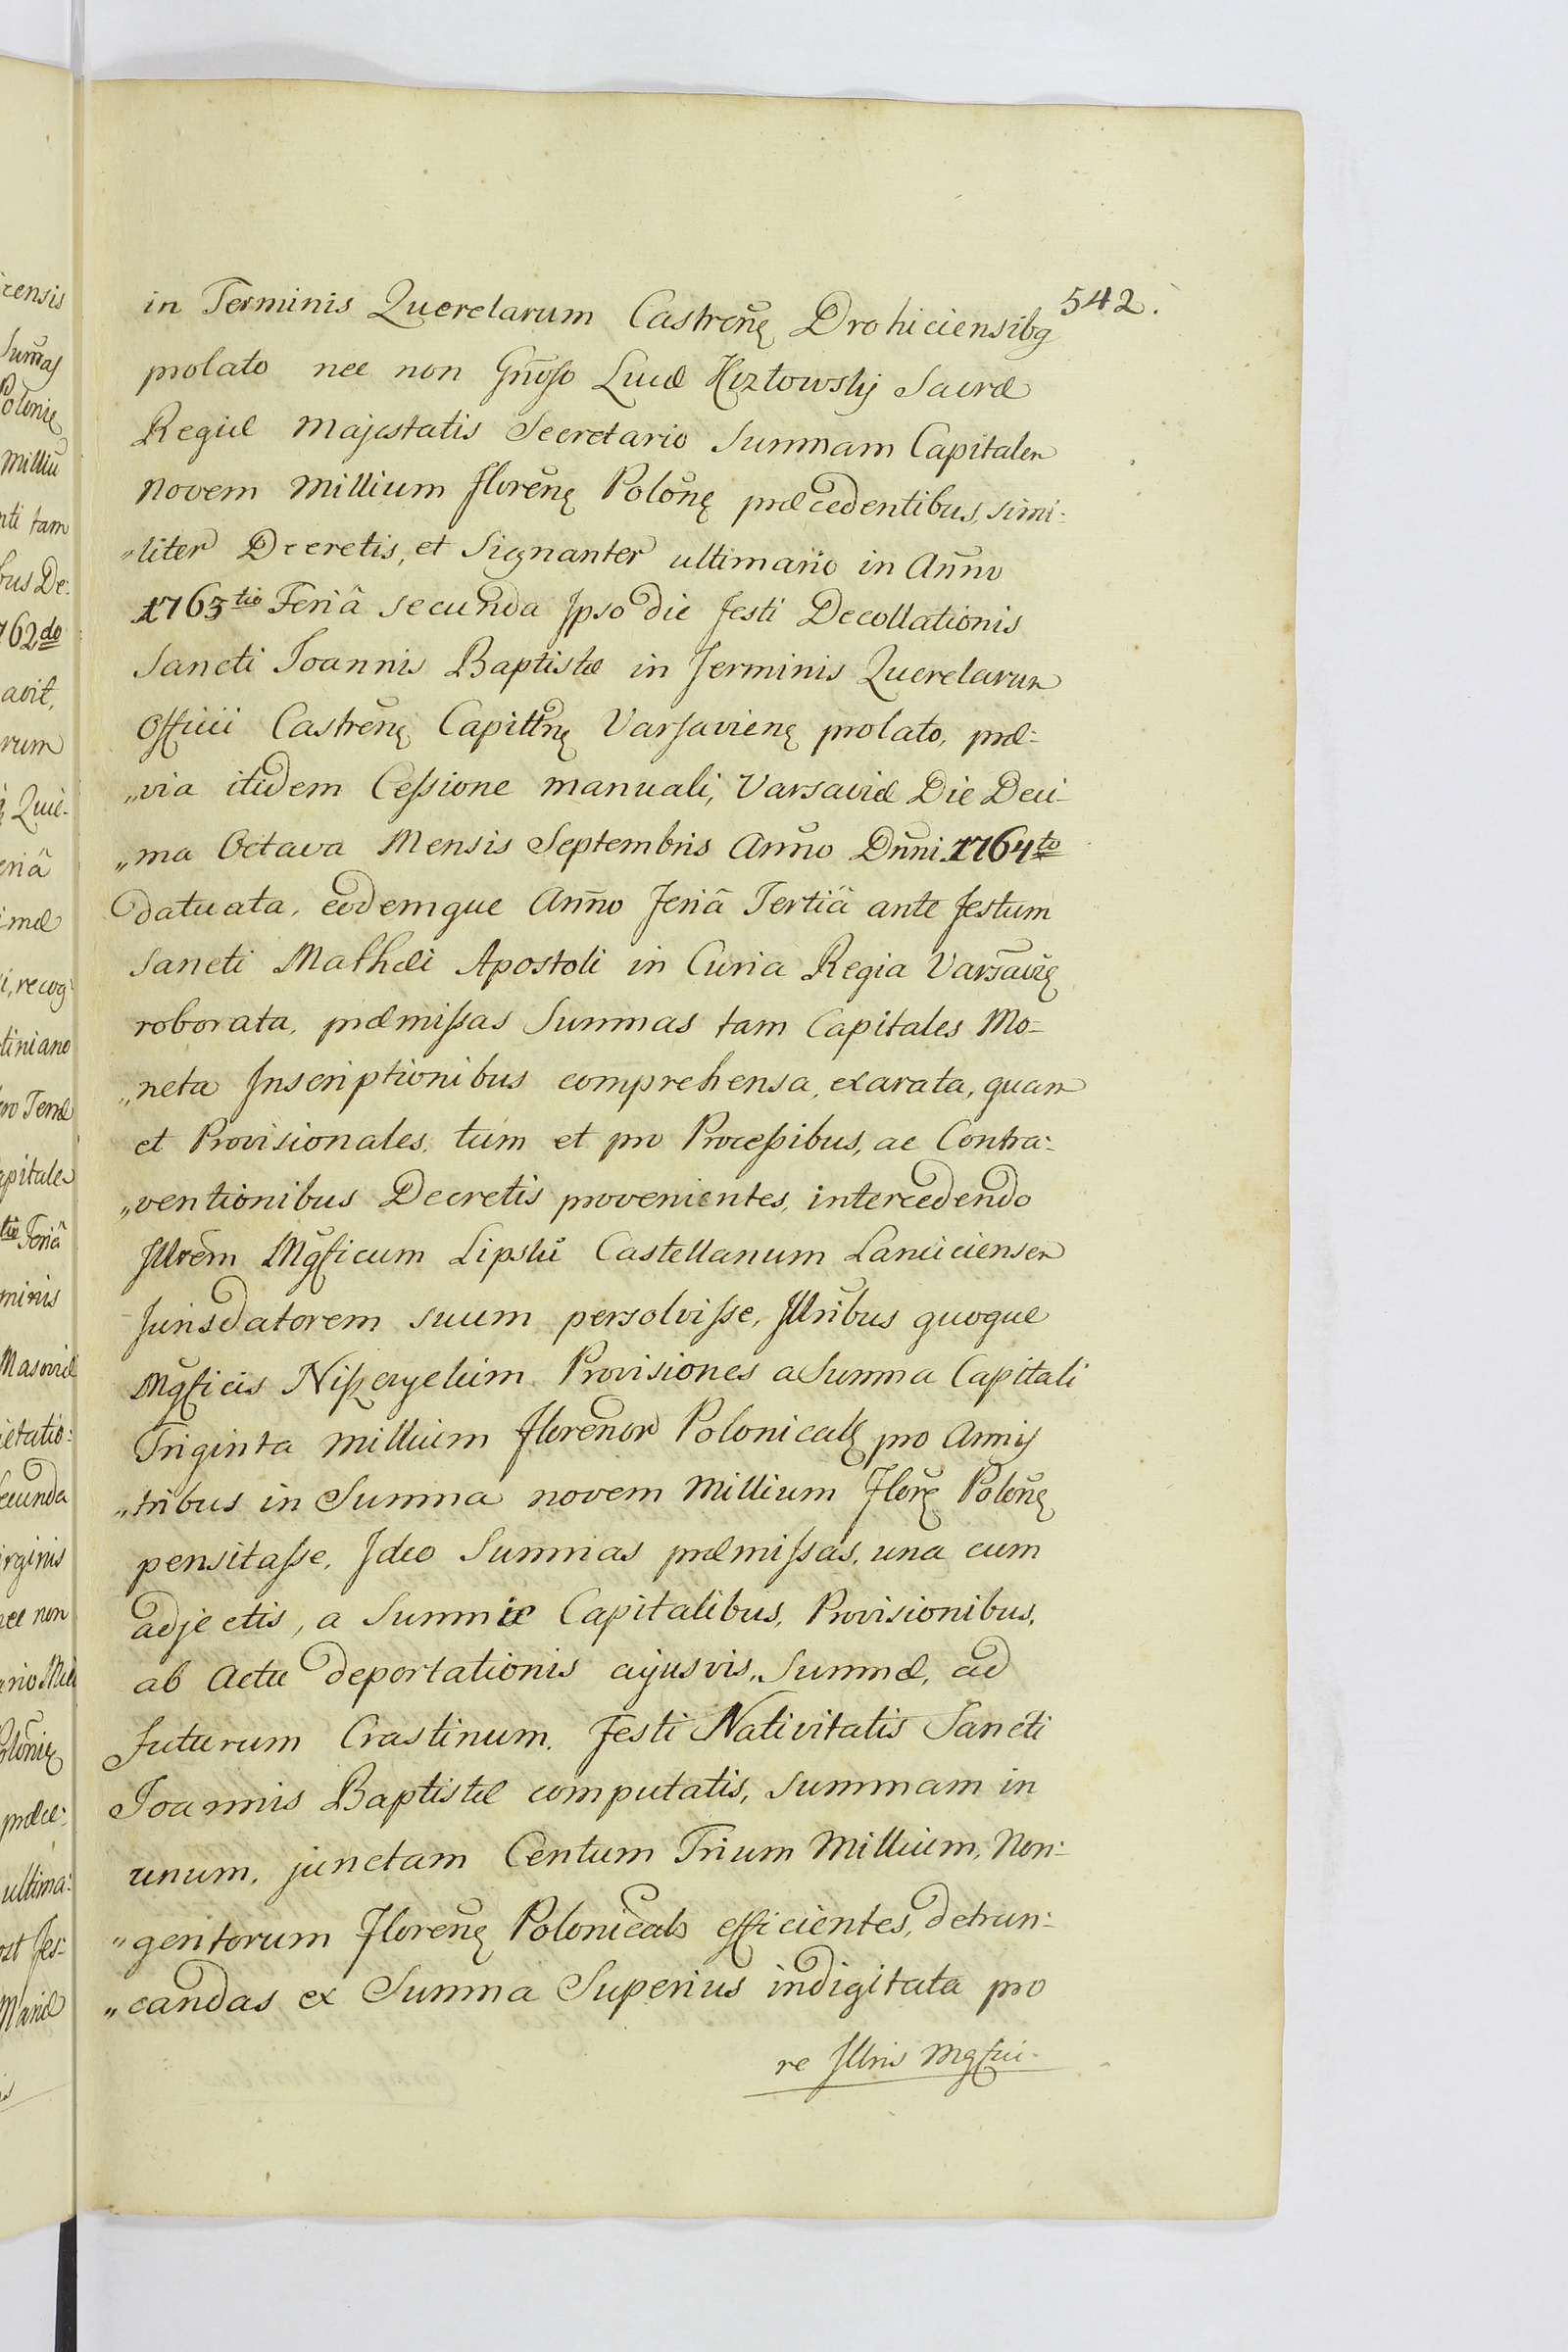 542.
in Terminis Querelarum Castren̄ę Drohiciensibq
prolato nec non Gn̄oso Lucæ Kozłowskij Sacræ
Regiæ Majestatis Secretario Summam Capitalem
Novem Millium Floren̄ę Polon̄ę præcedentibus, simi:
„liter Decretis, et Signanter ultimario in An̄no
1763tio Feriâ secunda Ipso die Festi Decollationis
Sancti Joannis Baptistæ in Terminis Querelarum
Officii Castren̄ę Capitln̄ę Varsavienę prolato, præ:
„via itidem Cessione manuali, Varsaviæ Die Deci-
„ma Octava Mensis Septembris An̄no Dn̄ni 1764to
datuata, eodemque An̄no Feriâ Tertiâ ante Festum
Sancti Mathæi Apostoli in Curia Regia Varsavię
roborata, præmissas Summas tam Capitales Mo-
„neta Inscriptionibus comprehensa, exarata, quam
et Provisionales, tum et pro Processibus, ac Contra:
„ventionibus Decretis provenientes, intercedendo
Illrem Mgficum Lipskū Castellanum Lanciciensem
Jurisdatorem suum persolvisse, Illribus quoque
Mgficis Niszczyckim Provisiones a Summa Capitali
Triginta millium Florenor Polonicalę pro Annis
„tribus in Summa novem Millium Florę Polonę
pensitasse, Ideo Summas præmissas, una cum
adjectis, a Summis Capitalibus, Provisionibus,
ab Actu deportationis cujusvis, Summæ, ad
futurum Crastinum Festi Nativitatis Sancti
Joannis Baptistæ computatis, Summam in
unum, junctam Centum Trium Millium, Non:
„gentorum Florenę Polonicalę efficientes, detrun:
„candas ex Summa Superius indigitata pro
re Illris Mgfici